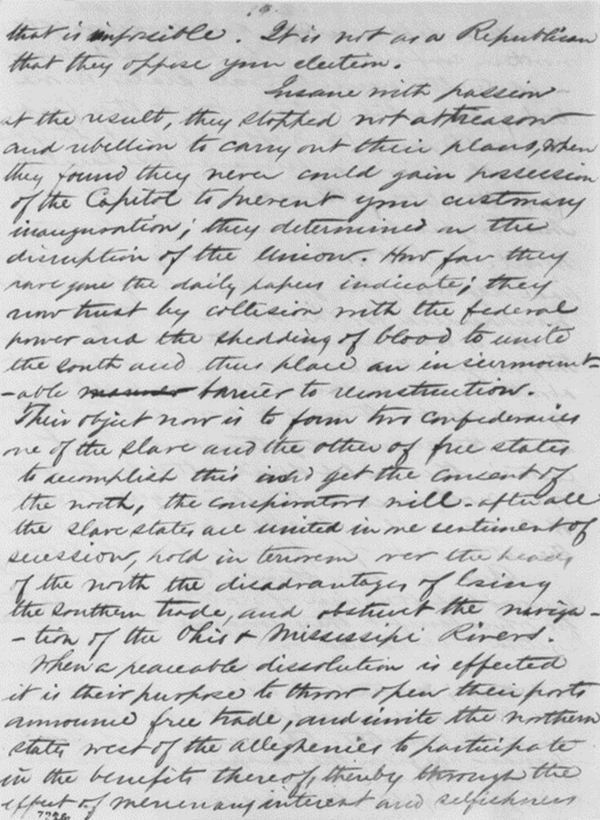 that is impossible. It is not as a Republican
that they oppose your election.
Insane with passion
at the result, they stopped not at treason
and rebellion to carry out their plans, when
they found they never could gain possession
of the Capitol to prevent your customary
inauguration; they determined on the
disruption of the Union. How far they
have gone the daily papers indicate; they
now trust by collision with the federal
power and the shedding of blood to unite
the south and thus place an insurmount-
-able manner barrier to reconstruction.
Their object now is to form two confederacies
one of the slave and the other of free states
to accomplish this and get the consent of
the north, the conspirators will - after all
the slave states are united in one sentiment of
secession, hold in terrorem over the heads
of the north the disadvantages of losing
the southern trade, and obstruct the naviga-
-tion of the Ohio & Mississippi Rivers.
When a peaceable dissolution is effected
it is their purpose to throw open their ports
announce free trade, and invite the northern
states west of the alleghenies to participate
in the benefits thereof, thereby through the
effect of mercenary interest and selfishness